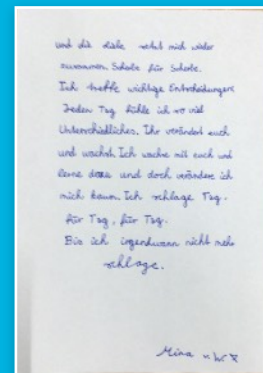 und die Liebe setzt mich wieder
zusammen Scheibe für Scheibe.
Ich treffe wichtige Entscheidungen
Jeden Tag fühle ich so viel
Unterschiedliches. Ihr verändert euch
und wachst Ich wachse mit euch und
lerne dazu und doch verändere ich
mich kaum. Ich schlage Tag.
für Tag, für Tag.
Bis ich irgendwann nicht mehr
schlage.
Mina